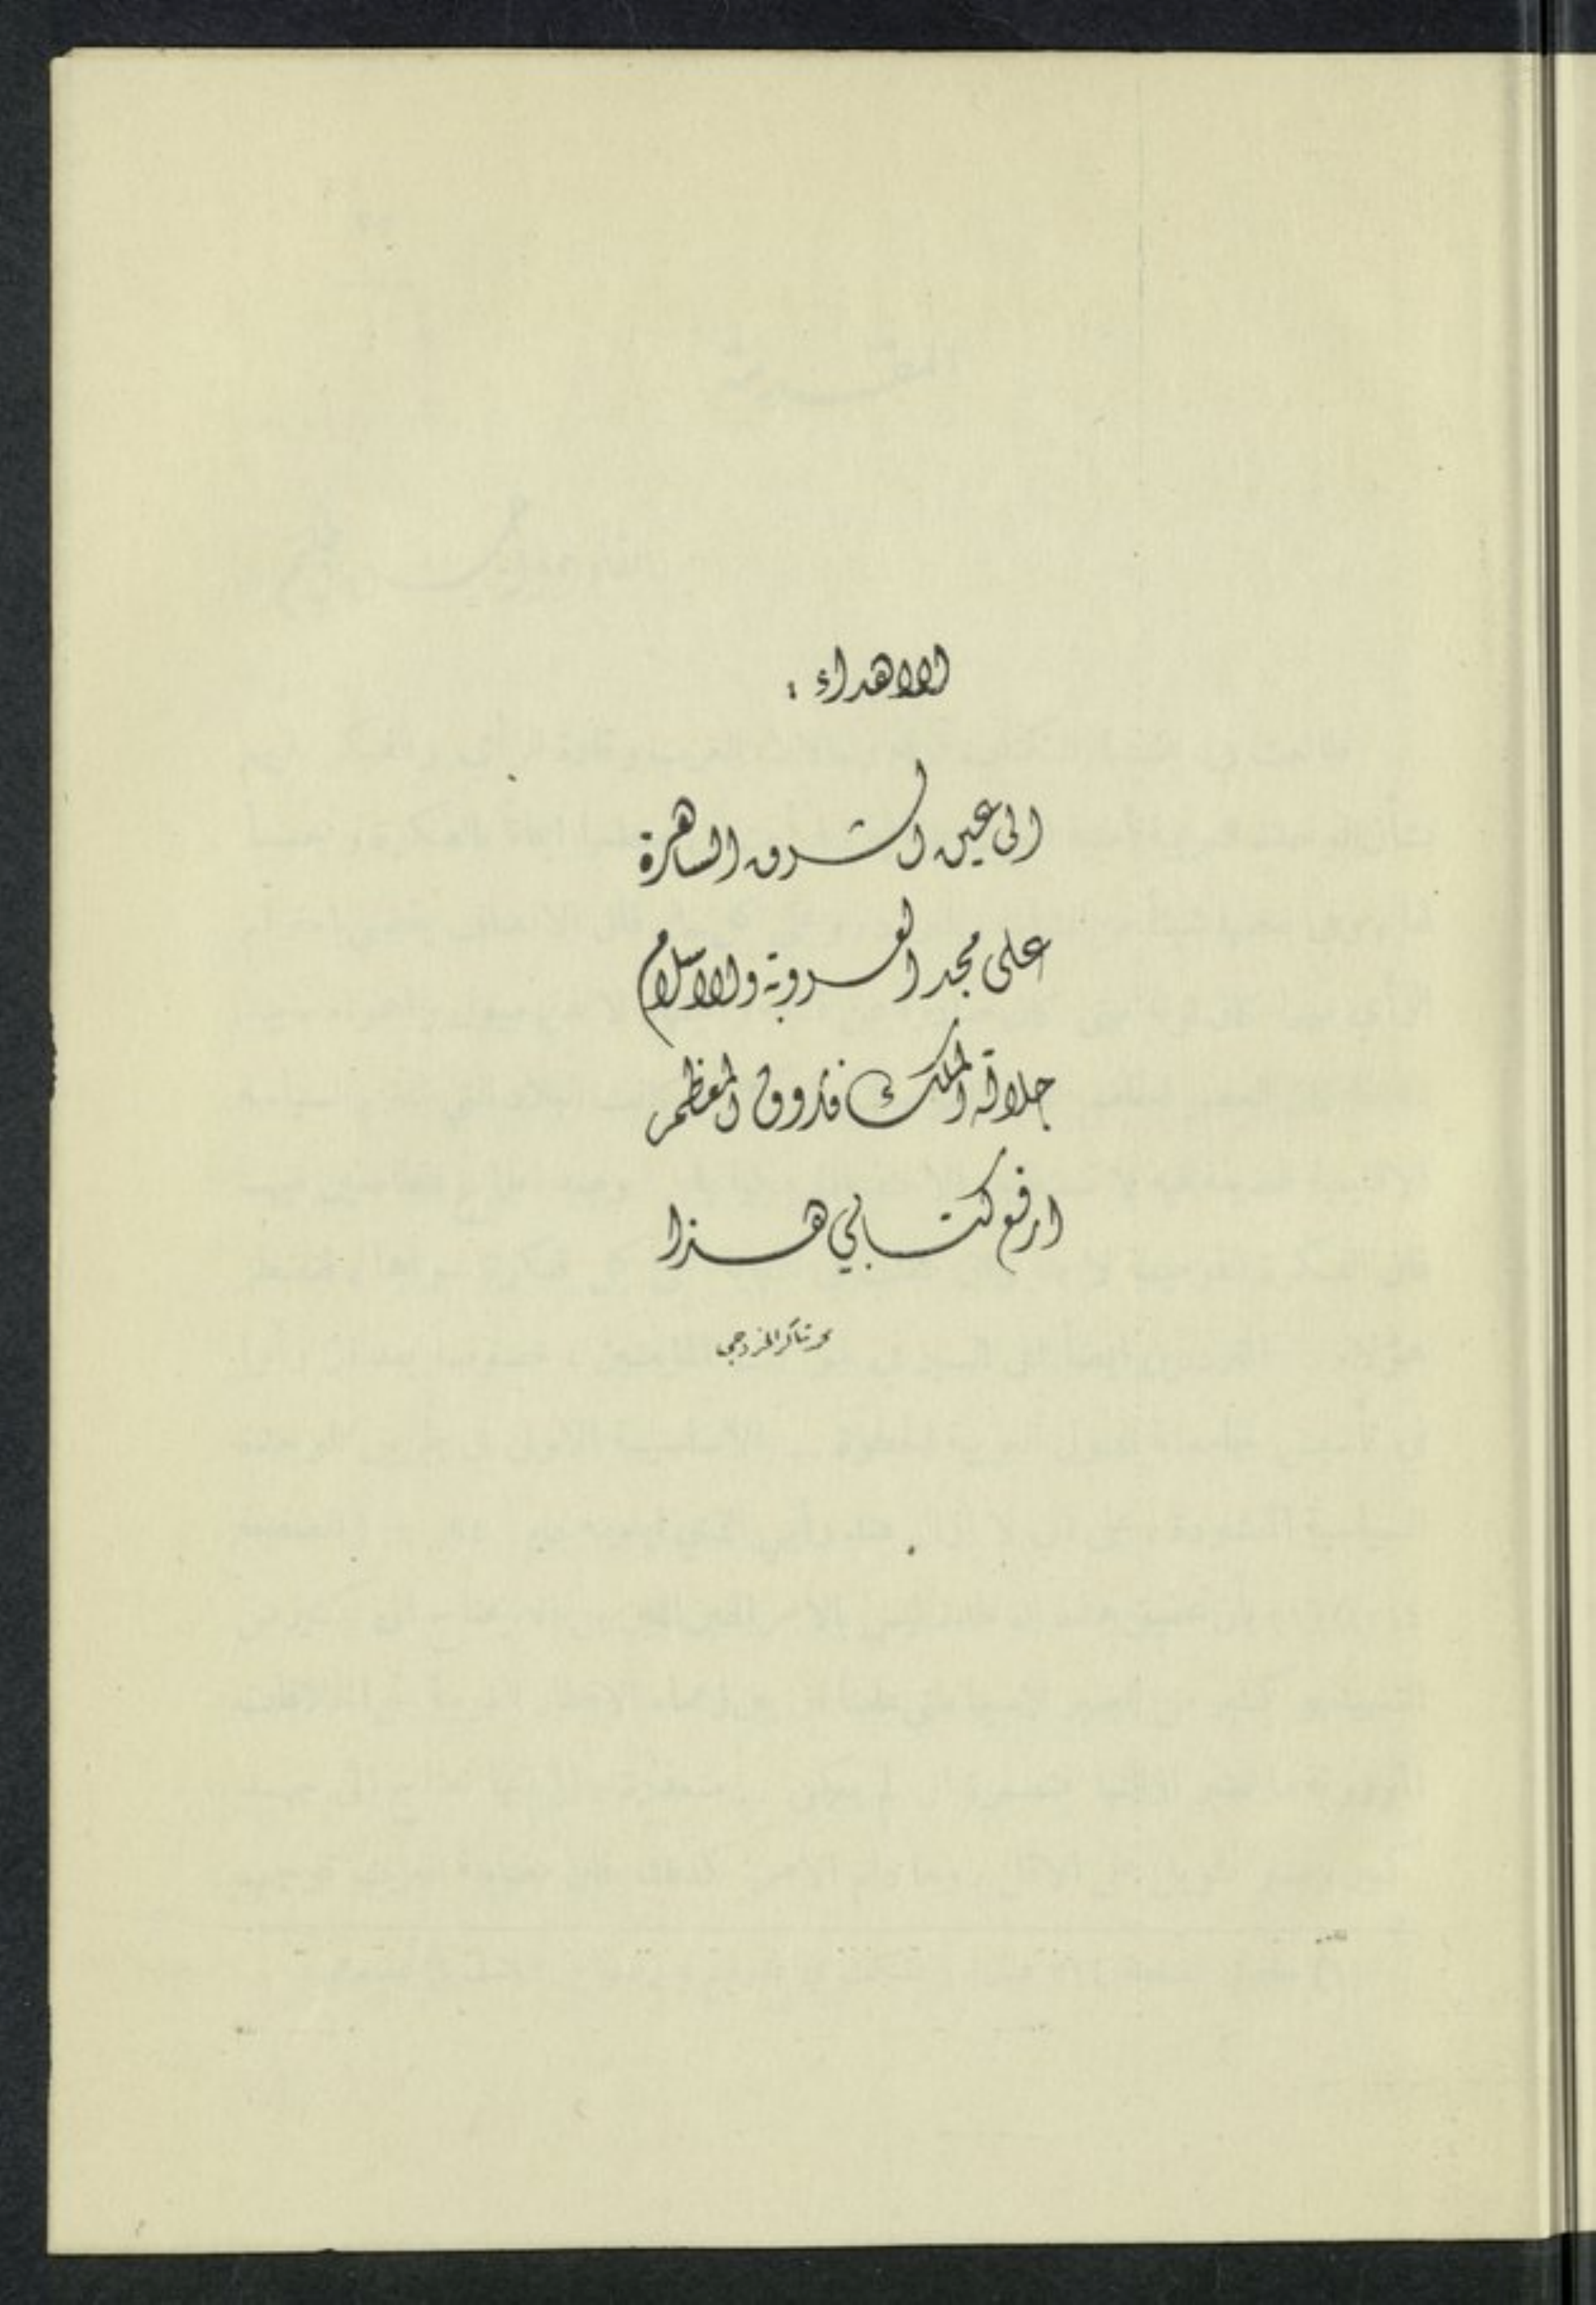 الاهداء :
الى عين الشرق الساهرة
على مجد العروبة والاسلام
جلالة الملك فاروق المعظم
ارفع كتابي هذا
محمد شاكر الخردجي